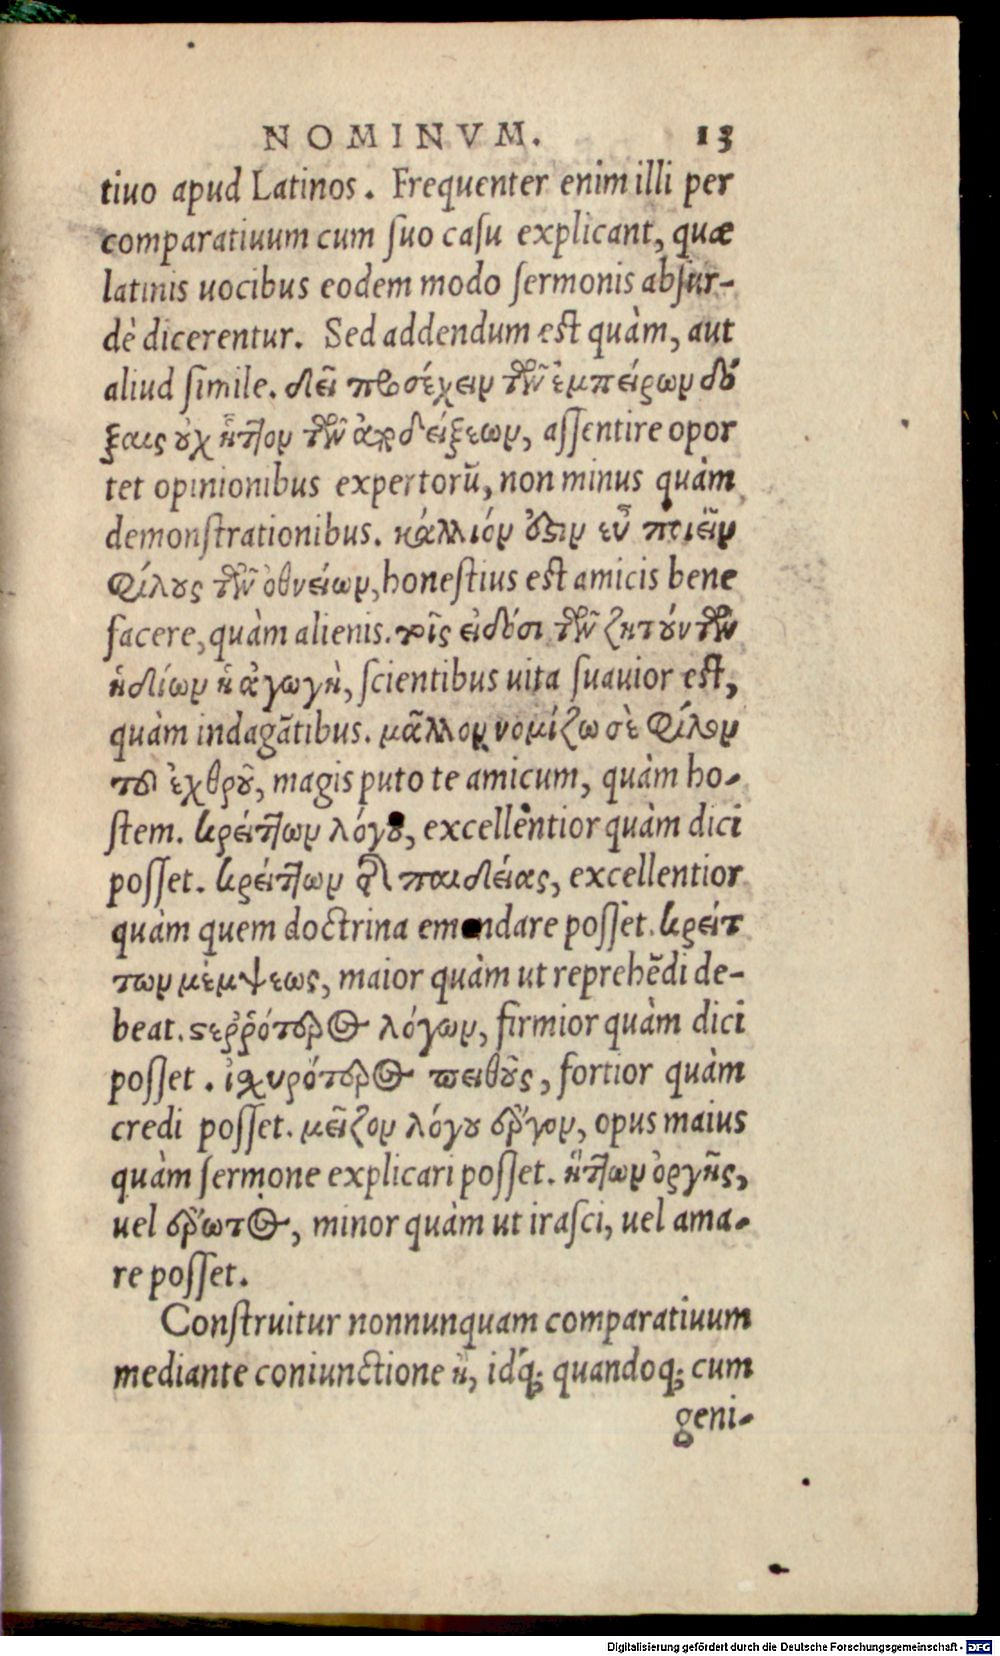 NOMINVM. 13
tiuo apud Latinos. Frequenter enim illi per
comparatiuum cum ſuo caſu explicant, quæ
latinis uocibus eodem modo ſermonis abſur-
dè dicerentur. Sed addendum est quàm, aut
aliud ſimile. δεῖ προσέχειν τῶν ἐμπείρων δό
ξαις οὐχ ἧττον τῶν ἀποδείξεων, aſſentire opor
tet opinionibus expertorũ, non minus quàm
demonſtrationibus. κάλλιόν ὅστιν εὖ ποιεῖν
φίλους τῶν ὀθνείων, honeſtius est amicis bene
facere, quàm alienis. τοῖς εἰδόσι τῶν ζητούντων
ἡδίων ἡ ἀγωγὴ, ſcientibus uita ſuauior est,
quàm indagãtibus. μᾶλλον νομίζω σὲ φίλον
τοῦ ἐχθροῦ, magis puto te amicum, quàm ho-
ſtem. κρείττων λόγου, excellentior quàm dici
poſſet. κρείττων παιδείας, excellentior
quàm quem doctrina emendare poſſet. κρείτ
των μέμψεως, maior quàm ut reprehẽdi de-
beat. στεῤῥότερος λόγων, firmior quàm dici
poſſet. ἰσχυρότερος πειθοῦς, fortior quàm
credi poſſet. μεῖζον λόγου ἔργον, opus maius
quàm ſermone explicari poſſet. ἥττων ὀργῆς,
uel ἔρωτος, minor quàm ut iraſci, uel ama-
re poſſet.
Conſtruitur nonnunquam comparatiuum
mediante coniunctione ἢ, idq́; quandoq; cum
geni-
Digitalisierung gefördert durch die Deutsche Forschungsgemeinschaft - DFG